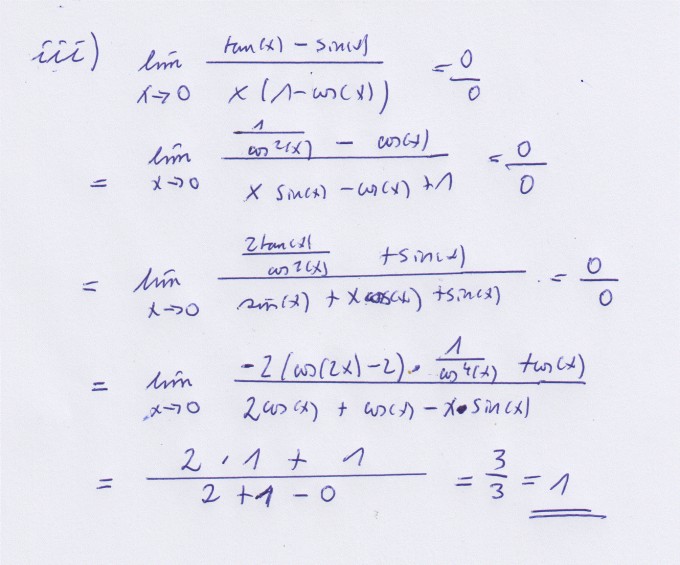 iii) lim x→0 (tan(x) − sin(x)) / (x (1−cos(x))) = 0/0
= lim x→0 (1/cos²(x) − cos(x)) / (x sin(x) − cos(x) + 1) = 0/0
= lim x→0 (2tan(x)/cos²(x) + sin(x)) / (sin(x) + x cos(x) + sin(x)) = 0/0
= lim x→0 (−2(cos(2x)−2) · 1/cos⁴(x) + cos(x)) / (2cos(x) + cos(x) − x · sin(x))
= (2 · 1 + 1) / (2 + 1 − 0) = 3/3 = 1